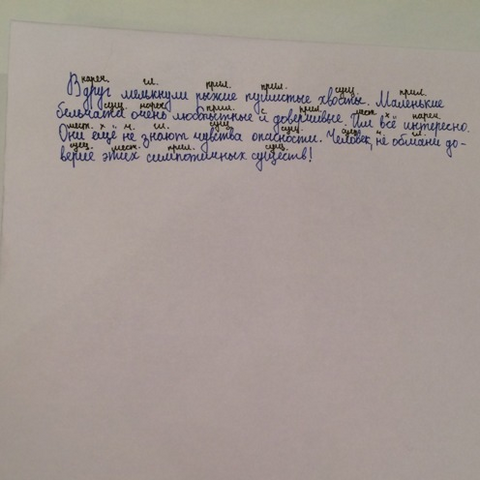 нареч. гл. прил. прил. сущ. прил.
Вдруг мелькнули рыжие пушистые хвосты. Маленькие
сущ. нареч. прил. с. прил. мест. х нареч.
бельчата очень любопытные и доверчивые. Им всё интересно.
мест. х ч. гл. сущ. сущ. сущ. ч. гл.
Они ещё не знают чувства опасности. Человек, не обмани до-
сущ. мест. прил. сущ.
верие этих симпатичных существ!